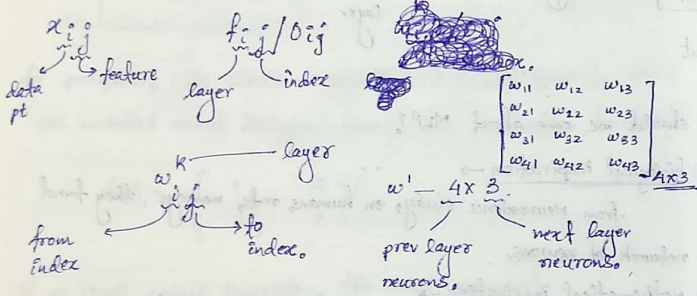 xij
data pt
feature
fij/Oij
layer
index
w11 w12 w13
w21 w22 w23
w31 w32 w33
w41 w42 w43
4x3
w k ij
layer
from index
to index.
w' - 4x3.
prev layer neurons.
next layer neurons.